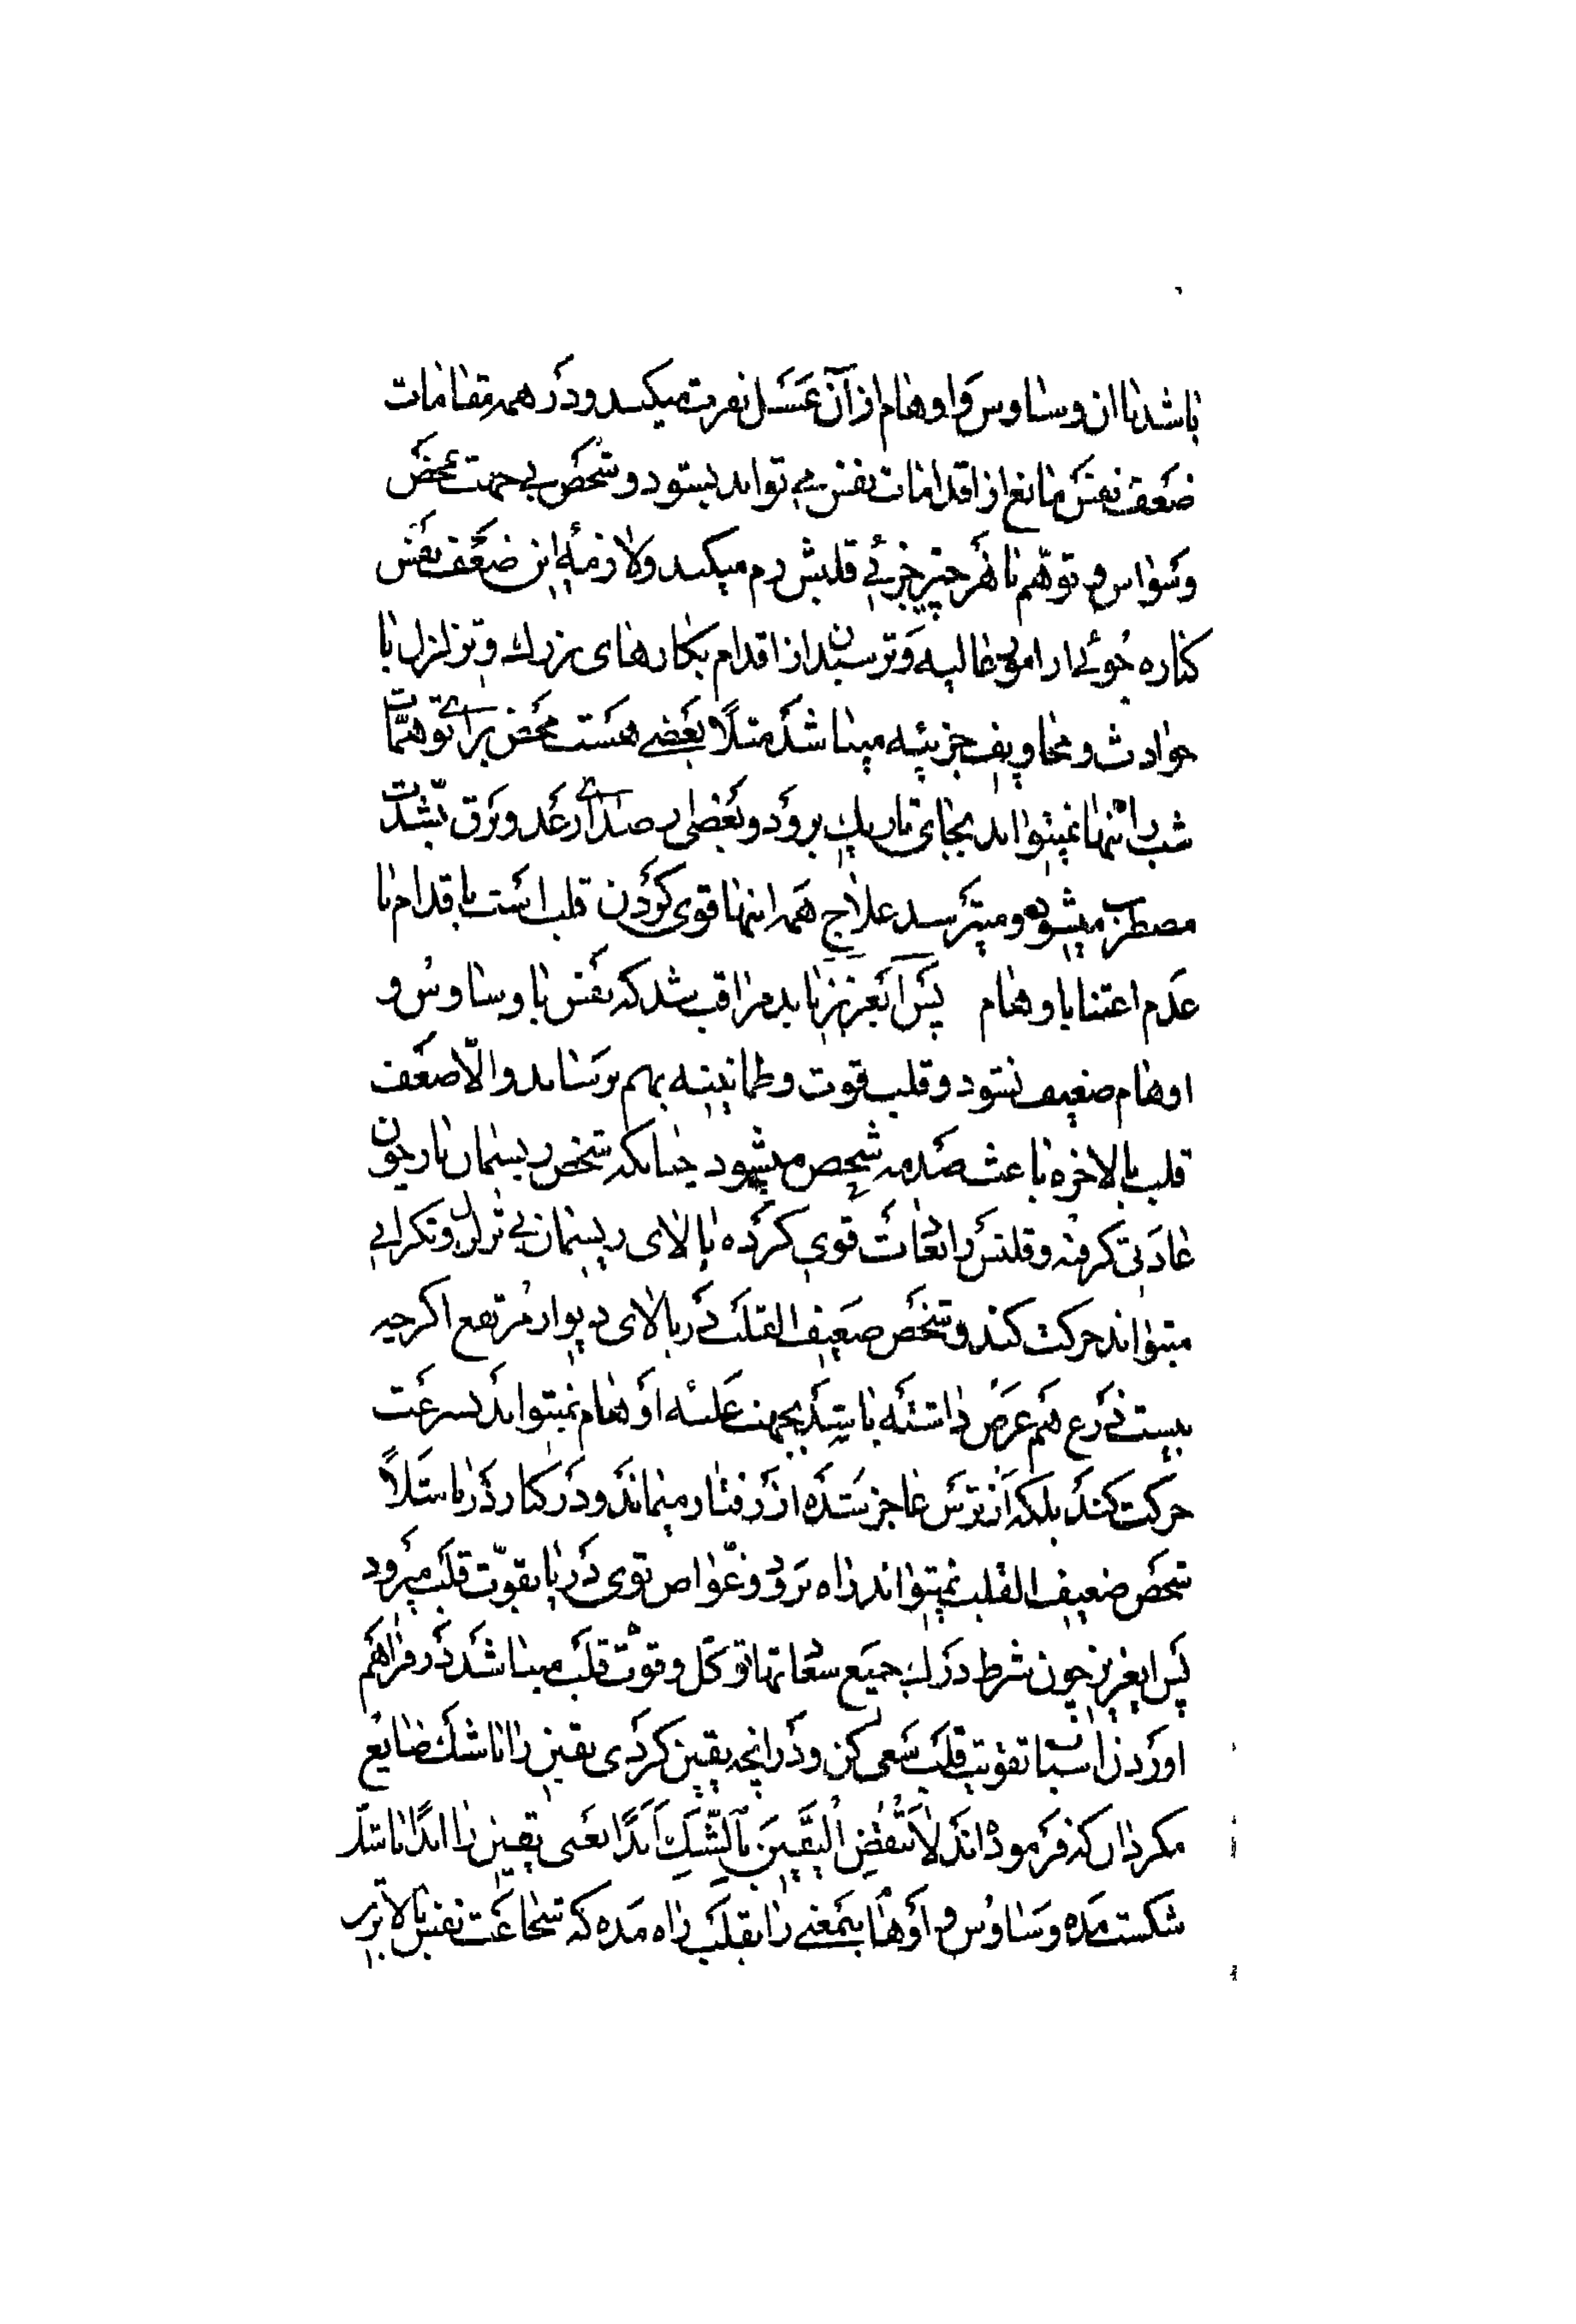 باشد با ان وساوس و اوهام از آن عسل نفرت میکند و در همه مقامات
ضعف نفس مانع از اقدامات نفس می تواند بشود و شخص بی جهت محض
وسواس و توهم با هر چیز جزئی قلبش رم میکند و لازمه این ضعف نفس
کناره جوئی از امور عالیه و ترسیدن از اقدام بکارهای بزرك و تزلزل با
حوادث و مخاویف جزئیه میباشد مثلاً بعضے هست محض برای توهمات
شب را تنها نمیتواند بجای تاریك برود و بعضی از صدای رعد و برق بشدت
مضطرب میشود و میترسد علاج همه اینها قوی کردن قلب است باقدام با
عدم اعتنا باوهام پس آیعزیز باید مراقب شد که نفس با وساوس و
اوهام ضعیف نشود و قلب قوت و طمانینه بهم برساند و الّا ضعف
قلب بالاخره باعث صدمه شخص میشود چنانکه شخص ریسمان باز چون
عادتی کرفته و قلبش را بعادت قوی کرده بالای ریسمان بی تزلزل و نکرانی
میتواند حرکت کند و شخص ضعیف القلب در بالای دیوار مرتفع اکرچه
بیست ذرع هم عرض داشته باشد بجهت غلبه اوهام نمیتواند بسرعت
حرکت کند بلکه از ترس عاجز شده از رفتار میماند و در کنار دریا مثلاً
شخص ضعیف القلب نمیتواند راه برود و غوّاص توی دریا بقوّت قلب میرود
پس ایعزیز چون شرط درك جمیع سعادتها توکّل و قوّت قلب میباشد در فراهم
اوردن اسباب تقویت قلب سعی کن و در انچه یقین کردی یقین را با شك ضایع
مکردان که فرموده اند لَا تَنْقُضِ الْیَقینَ بِالشَّكِ اَبَدًا یعنی یقین را ابدًا با شك
شکست مده و وساوس و اوهام بیمعنے را بقلب راه مده که شجاعت نفس بالاترین